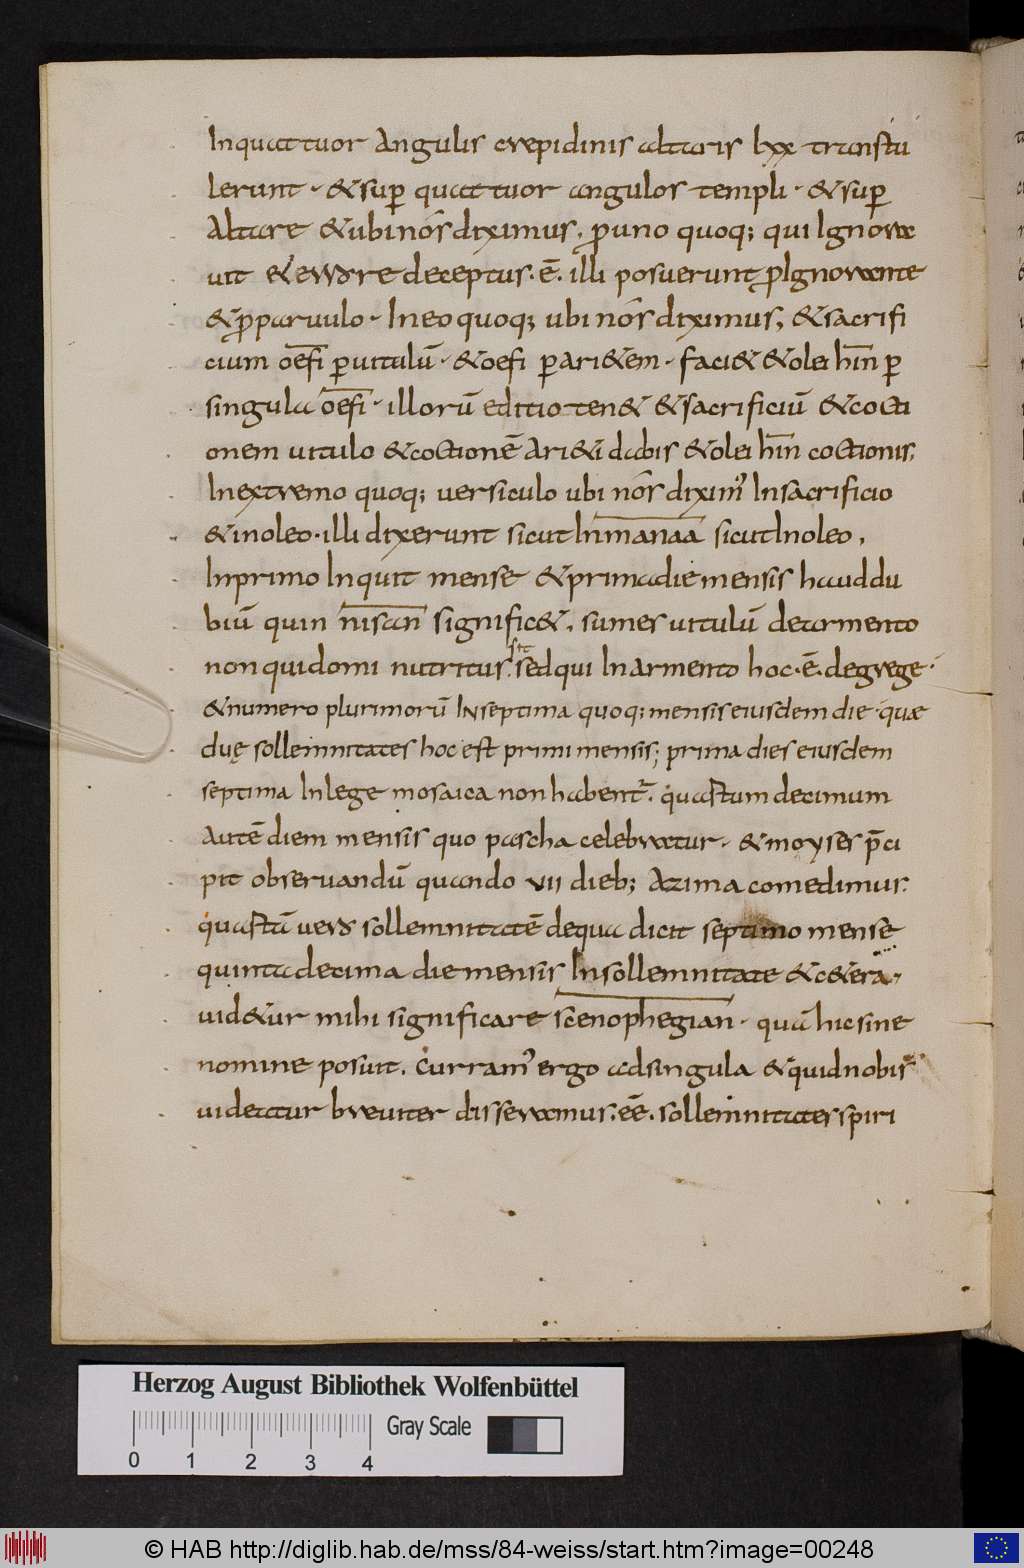 Inquattuor Angulis crepidinis altaris lxx transtu
lerunt · &sup̱ quattuor angulos templi · &sup̱
Altare &ubi nos̄ diximus, ꝓuno quoq; qui Ignora
uit &errore deceptus · ē · illi posuerunt ꝓIgnorante
&ꝓparuulo · Ineo quoq; ubi nos̄ diximus, &sacrifi
cium oefi ꝑuitulū · &oefi ꝑari&em · faci& &olei hin ꝑ
singula oefi · illorū editio ten& &sacrificiū &cocti
onem uitulo &coctionē Ari&i dabis &olei hin coctionis,
Inextremo quoq; uersiculo ubi nos̄ dixim' Insacrificio
&inoleo · illi dixerunt sicut Inmanaa sicut Inoleo,
Inprimo Inquit mense &primadie mensis hauddu
biū quin nisan signific&, sumes uitulū dearmento
non qui domi nutritus sit, sedqui Inarmento hoc · ē · degrege ·
&numero plurimorū INseptima quoq; mensis eiusdem die · quae
duę sollemnitates hoc est primi mensis; prima dies eiusdem
septima Inlege mosaica non habent᷑. quastum decimum
Autē diem mensis quo pascha celebratur · &moyses p̄ci
pit obseruandū quando vii dieb; Azima comedimus.
quastā uero sollemnitatē dequa dicit septimo mense
quinta decima die mensis Insollemnitate &c&era ·
uid&ur mihi significare scenophegian · quā hic sine
nomine posuit. Curram' ergo adsingula &quid nobis
uideatur breuiter disseramus, eē, sollemnitates spiri
Herzog August Bibliothek Wolfenbüttel
Gray Scale
0 1 2 3 4
© HAB http://diglib.hab.de/mss/84-weiss/start.htm?image=00248